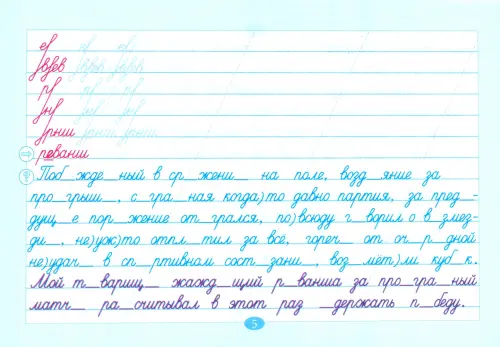 реванш
Поб_жде_ный в ср_жени_ на поле, возд_яние за
про_грыш_, с_гра_ная когда)то давно партия, за пред_
дущ_е пор_жение от_грался, по)всюду г_ворил о в_змез-
ди_, не)уж)то отпл_тил за все, гореч_ от оч_р_дной
не)удач_ в сп_ртивном сост_зани_, воз_мет)ли куб_к.
Мой т_варищ_ жажд_щий р_ванша за про_гра_ный
матч_ ра_считывал в этот раз _держать п_беду.
5